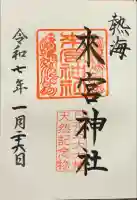 熱海
來宮神社
令和七年一月二十六日
來宮神社
天然記念物